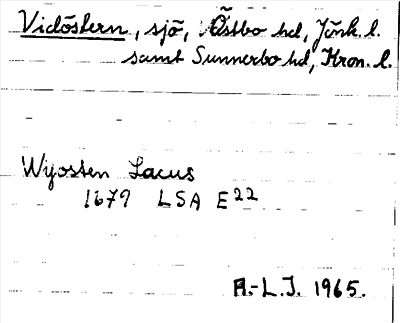 Vidöstern, sjö, Östbo hd, Jönk. l.
samt Sunnerbo hd, Kron. l.
Wijosten Lacus
1679 LSA E22
A.-L.J. 1965.